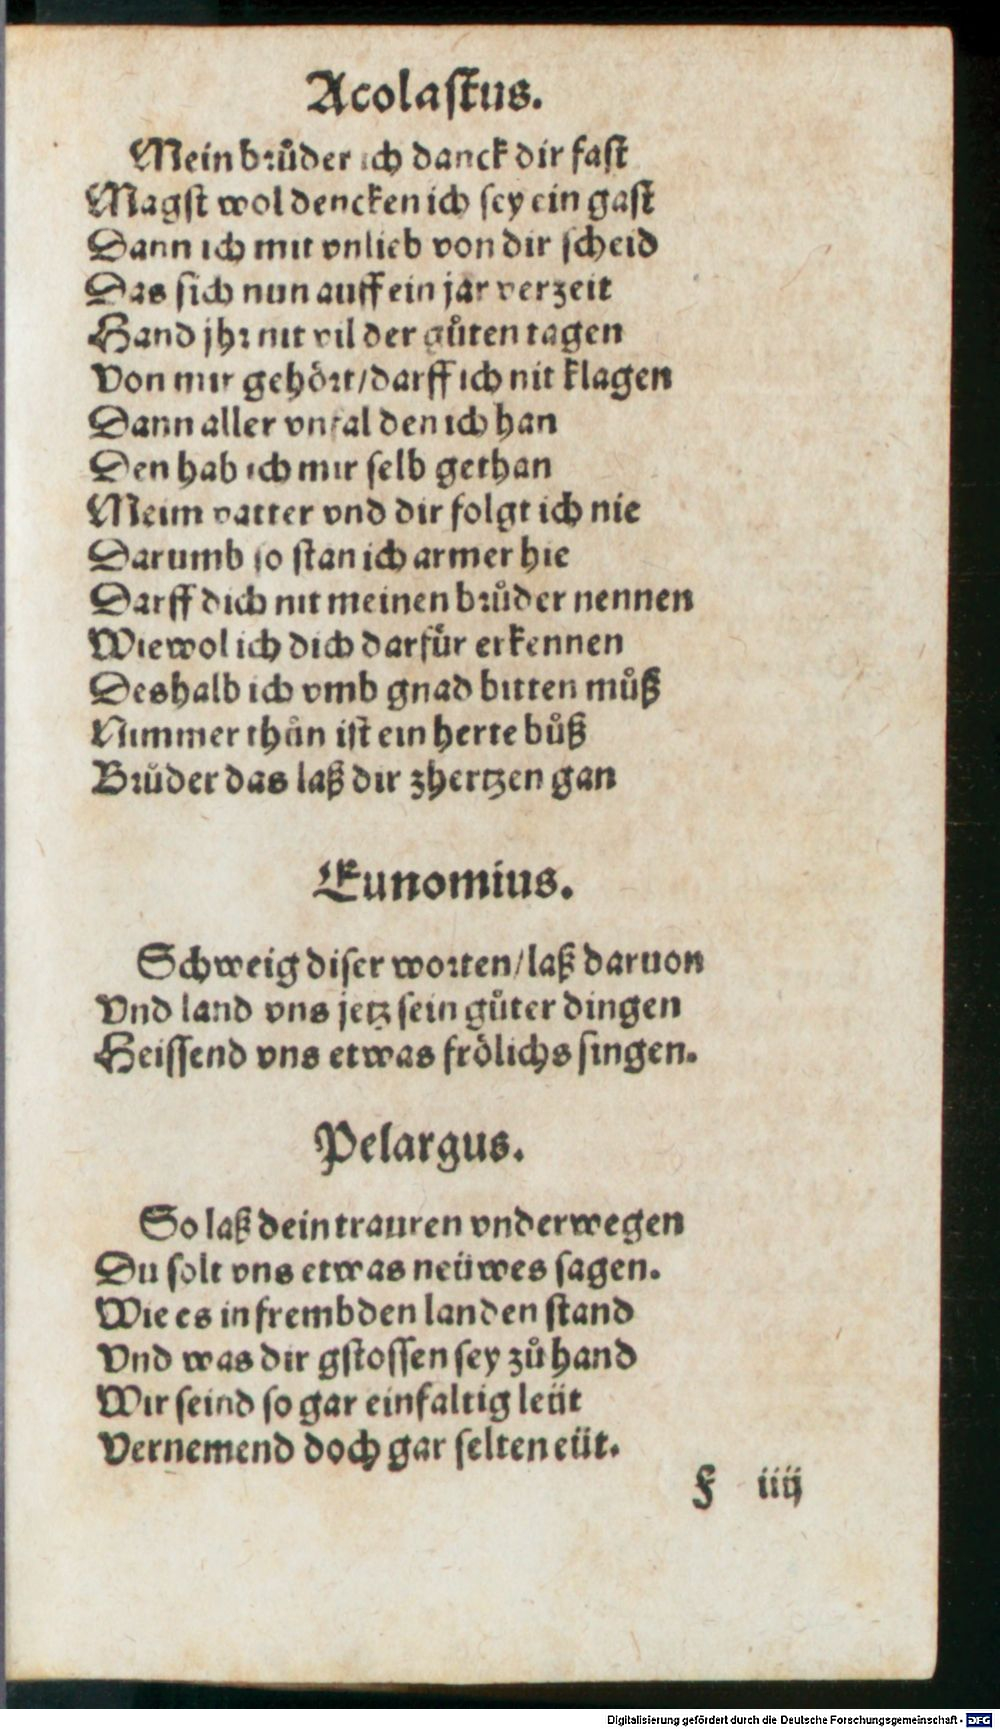 Acolastus.
Mein brůder ich danck dir fast
Magst wol dencken ich sey ein gast
Dann ich mit vnlieb von dir scheid
Das sich nun auff ein jar verzeit
Hand jhr nit vil der gůten tagen
Von mir gehört/darff ich nit klagen
Dann aller vnfal den ich han
Den hab ich mir selb gethan
Meim vatter vnd dir folgt ich nie
Darumb so stan ich armer hie
Darff dich nit meinen brůder nennen
Wiewol ich dich darfür erkennen
Deshalb ich vmb gnad bitten můß
Nimmer thůn ist ein herte bůß
Brůder das laß dir zhertzen gan
Eunomius.
Schweig diser worten/laß daruon
Vnd land vns jetz sein gůter dingen
Heissend vns etwas frölichs singen.
Pelargus.
So laß dein trauren vnderwegen
Du solt vns etwas neüwes sagen.
Wie es in frembden landen stand
Vnd was dir gstossen sey zů hand
Wir seind so gar einfaltig leüt
Vernemend doch gar selten eüt.
F iiij
Digitalisierung gefördert durch die Deutsche Forschungsgemeinschaft - DFG